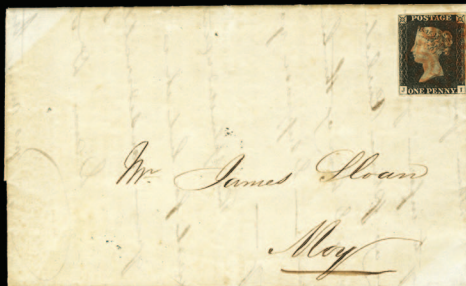 POSTAGE
J I
ONE PENNY
Mr James Sloan
Moy